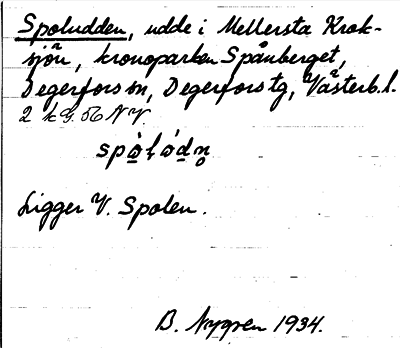 Spoludden, udde i Mellersta Krok-
sjön, kronoparken Spånberget,
Degerfors sn, Degerfors tg, Västerb. l.
2 kg. 56 NV
Ligger V. Spolen.
B. Nygren 1934.